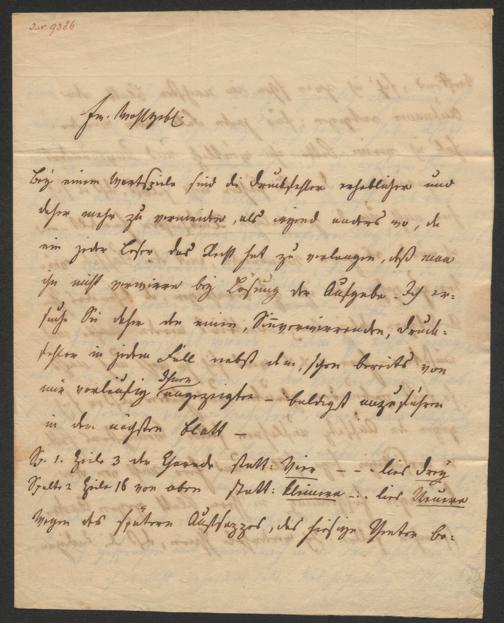 Inv. 9386
Ew. Wohlgeb.
Bey einem Wortspiele sind die Druckfehler erheblicher und
daher mehr zu vermeiden, als irgend anders wo, da
ein jeder Leser das Recht hat zu verlangen, daß man
ihn nicht verwirre bey Lösung der Aufgabe. Ich er-
suche Sie daher den einen, Sinnverwirrenden, Druck-
fehler in jedem Fall nebst dem, schon bereits von
mir vorläufig Ihnen angezeigten – baldigst anzuführen
in dem nächsten Blatt –
Sp. 1. Zeile 3 der Charade statt: Vier – – . lies drey
Spalte 2 Zeile 16 von oben statt: kleinere – . . lies Neuere
Wegen des spätern Aufsatzes, das hiesige Theater be-